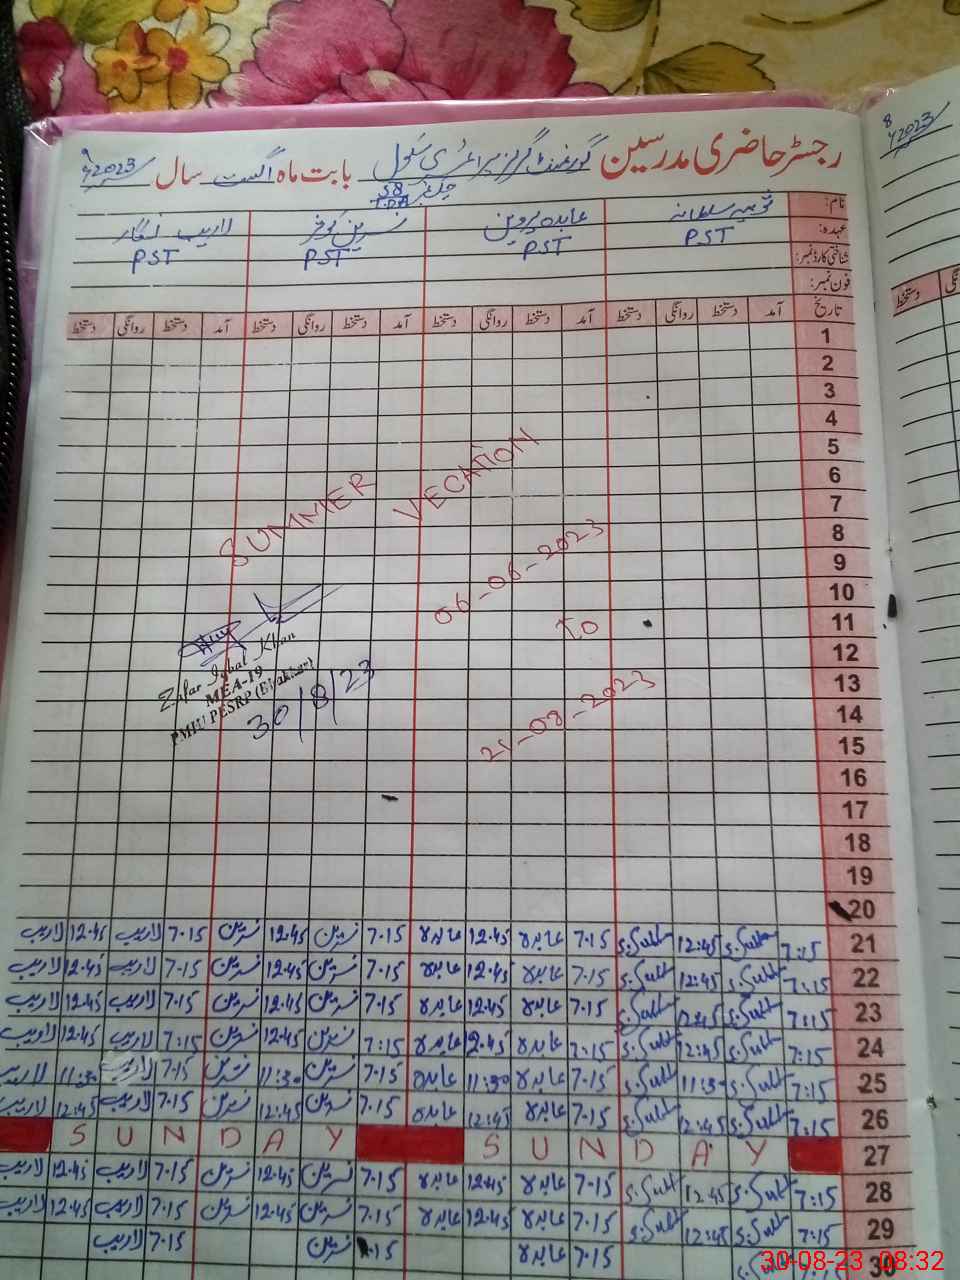 رجسٹر حاضری مدرسین گورنمنٹ گرلز پرائمری سکول بابت ماہ اگست سال 2023
چک نمبر 58 TDA
8 2023
نام: سلطانہ عابدہ پروین نسرین کوثر لاریب
عہدہ: PST PST PST PST
شناختی کارڈ نمبر:
فون نمبر:
تاریخ آمد دستخط روانگی دستخط آمد دستخط روانگی دستخط آمد دستخط روانگی دستخط آمد دستخط روانگی دستخط
دستخط
1
2
3
4
5
6
7
8
9
10
11
12
13
14
15
16
17
18
19
20
SUMMER VECATION
06-06-2023
To
21-08-2023
Zafar Iqbal Khan
MEA-19
PMIU PESRP (Bhakkar)
30/8/23
21 7:15 S.Sult 12:45 S.Sult 7.15 عابدہ 12.45 عابدہ 7.15 نسرین 12.45 نسرین 7.15 لاریب 12.45 لاریب
22 7:15 S.Sult 12:45 S.Sult 7.15 عابدہ 12.45 عابدہ 7.15 نسرین 12.45 نسرین 7.15 لاریب 12.45 لاریب
23 7:15 S.Sult 12:45 S.Sult 7.15 عابدہ 12.45 عابدہ 7.15 نسرین 12.45 نسرین 7.15 لاریب 12.45 لاریب
24 7:15 S.Sult 12:45 S.Sult 7:15 عابدہ 12.45 عابدہ 7:15 نسرین 12.45 نسرین 7:15 لاریب 12.45 لاریب
25 7:15 S.Sult 11:30 S.Sult 7.15 عابدہ 11:30 عابدہ 7.15 نسرین 11:30 نسرین 7.15 لاریب 11:30 لاریب
26 7:15 S.Sult 12:45 S.Sult 7.15 عابدہ 12:45 عابدہ 7.15 نسرین 12:45 نسرین 7.15 لاریب 12:45 لاریب
27 SUNDAY SUNDAY
28 7:15 S.Sult 12:45 S.Sult 7.15 عابدہ 12.45 عابدہ 7.15 نسرین 12.45 نسرین 7.15 لاریب 12.45 لاریب
29 7:15 S.Sult 12:45 S.Sult 7.15 عابدہ 12.45 عابدہ 7.15 نسرین 12.45 نسرین 7.15 لاریب 12.45 لاریب
30 7:15 S.Sult 7.15 عابدہ 7.15 نسرین 7.15 لاریب
30-08-23 08:32